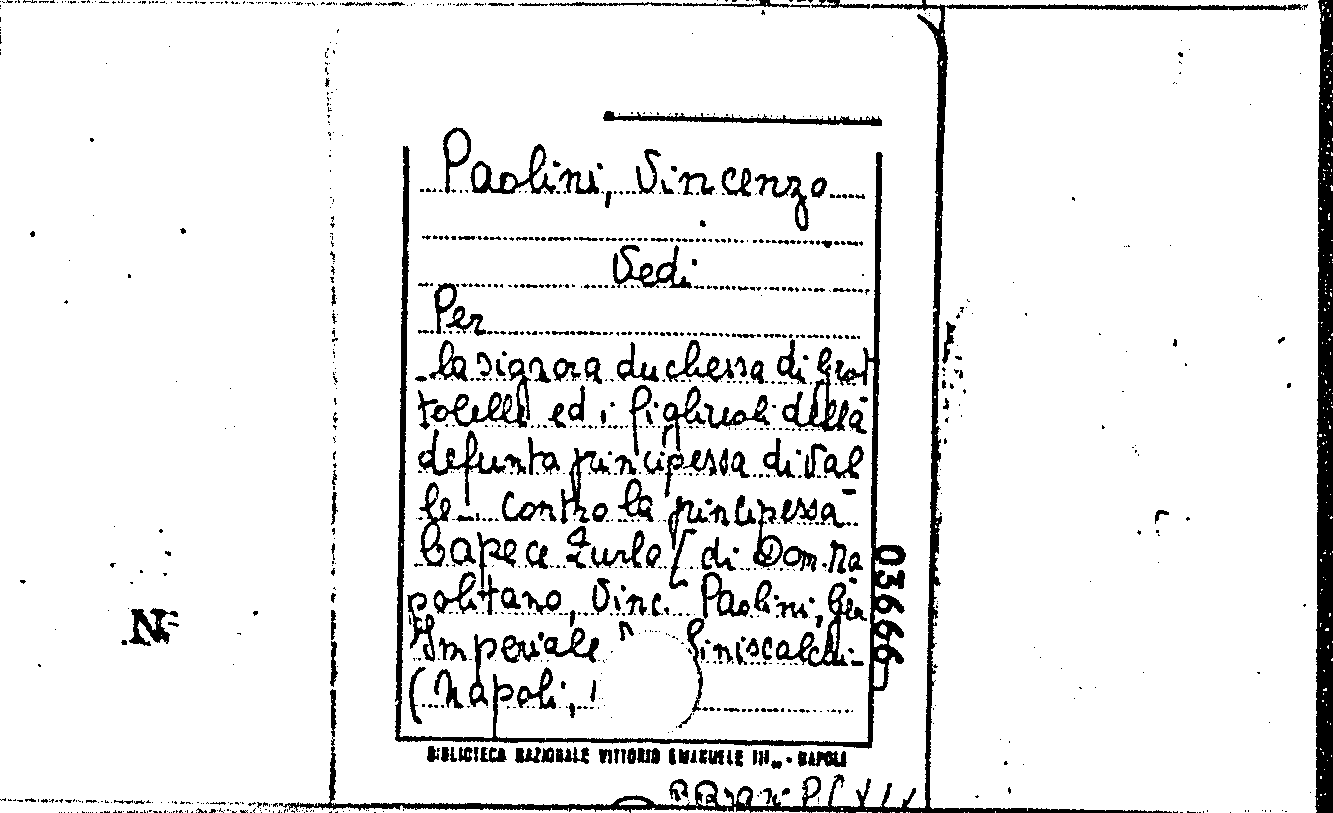 Paolini, Vincenzo
Vedi
Per
la signora duchessa di Grot
tolelle ed i figliuoli della
defunta principessa di Val
le contro la principessa
Capece Zurlo [di Dom. Na
politano, Vinc. Paolini, Gen
Imperiale Siniscalchi-
(Napoli,
03666
BIBLIOTECA NAZIONALE VITTORIO EMANUELE III - NAPOLI